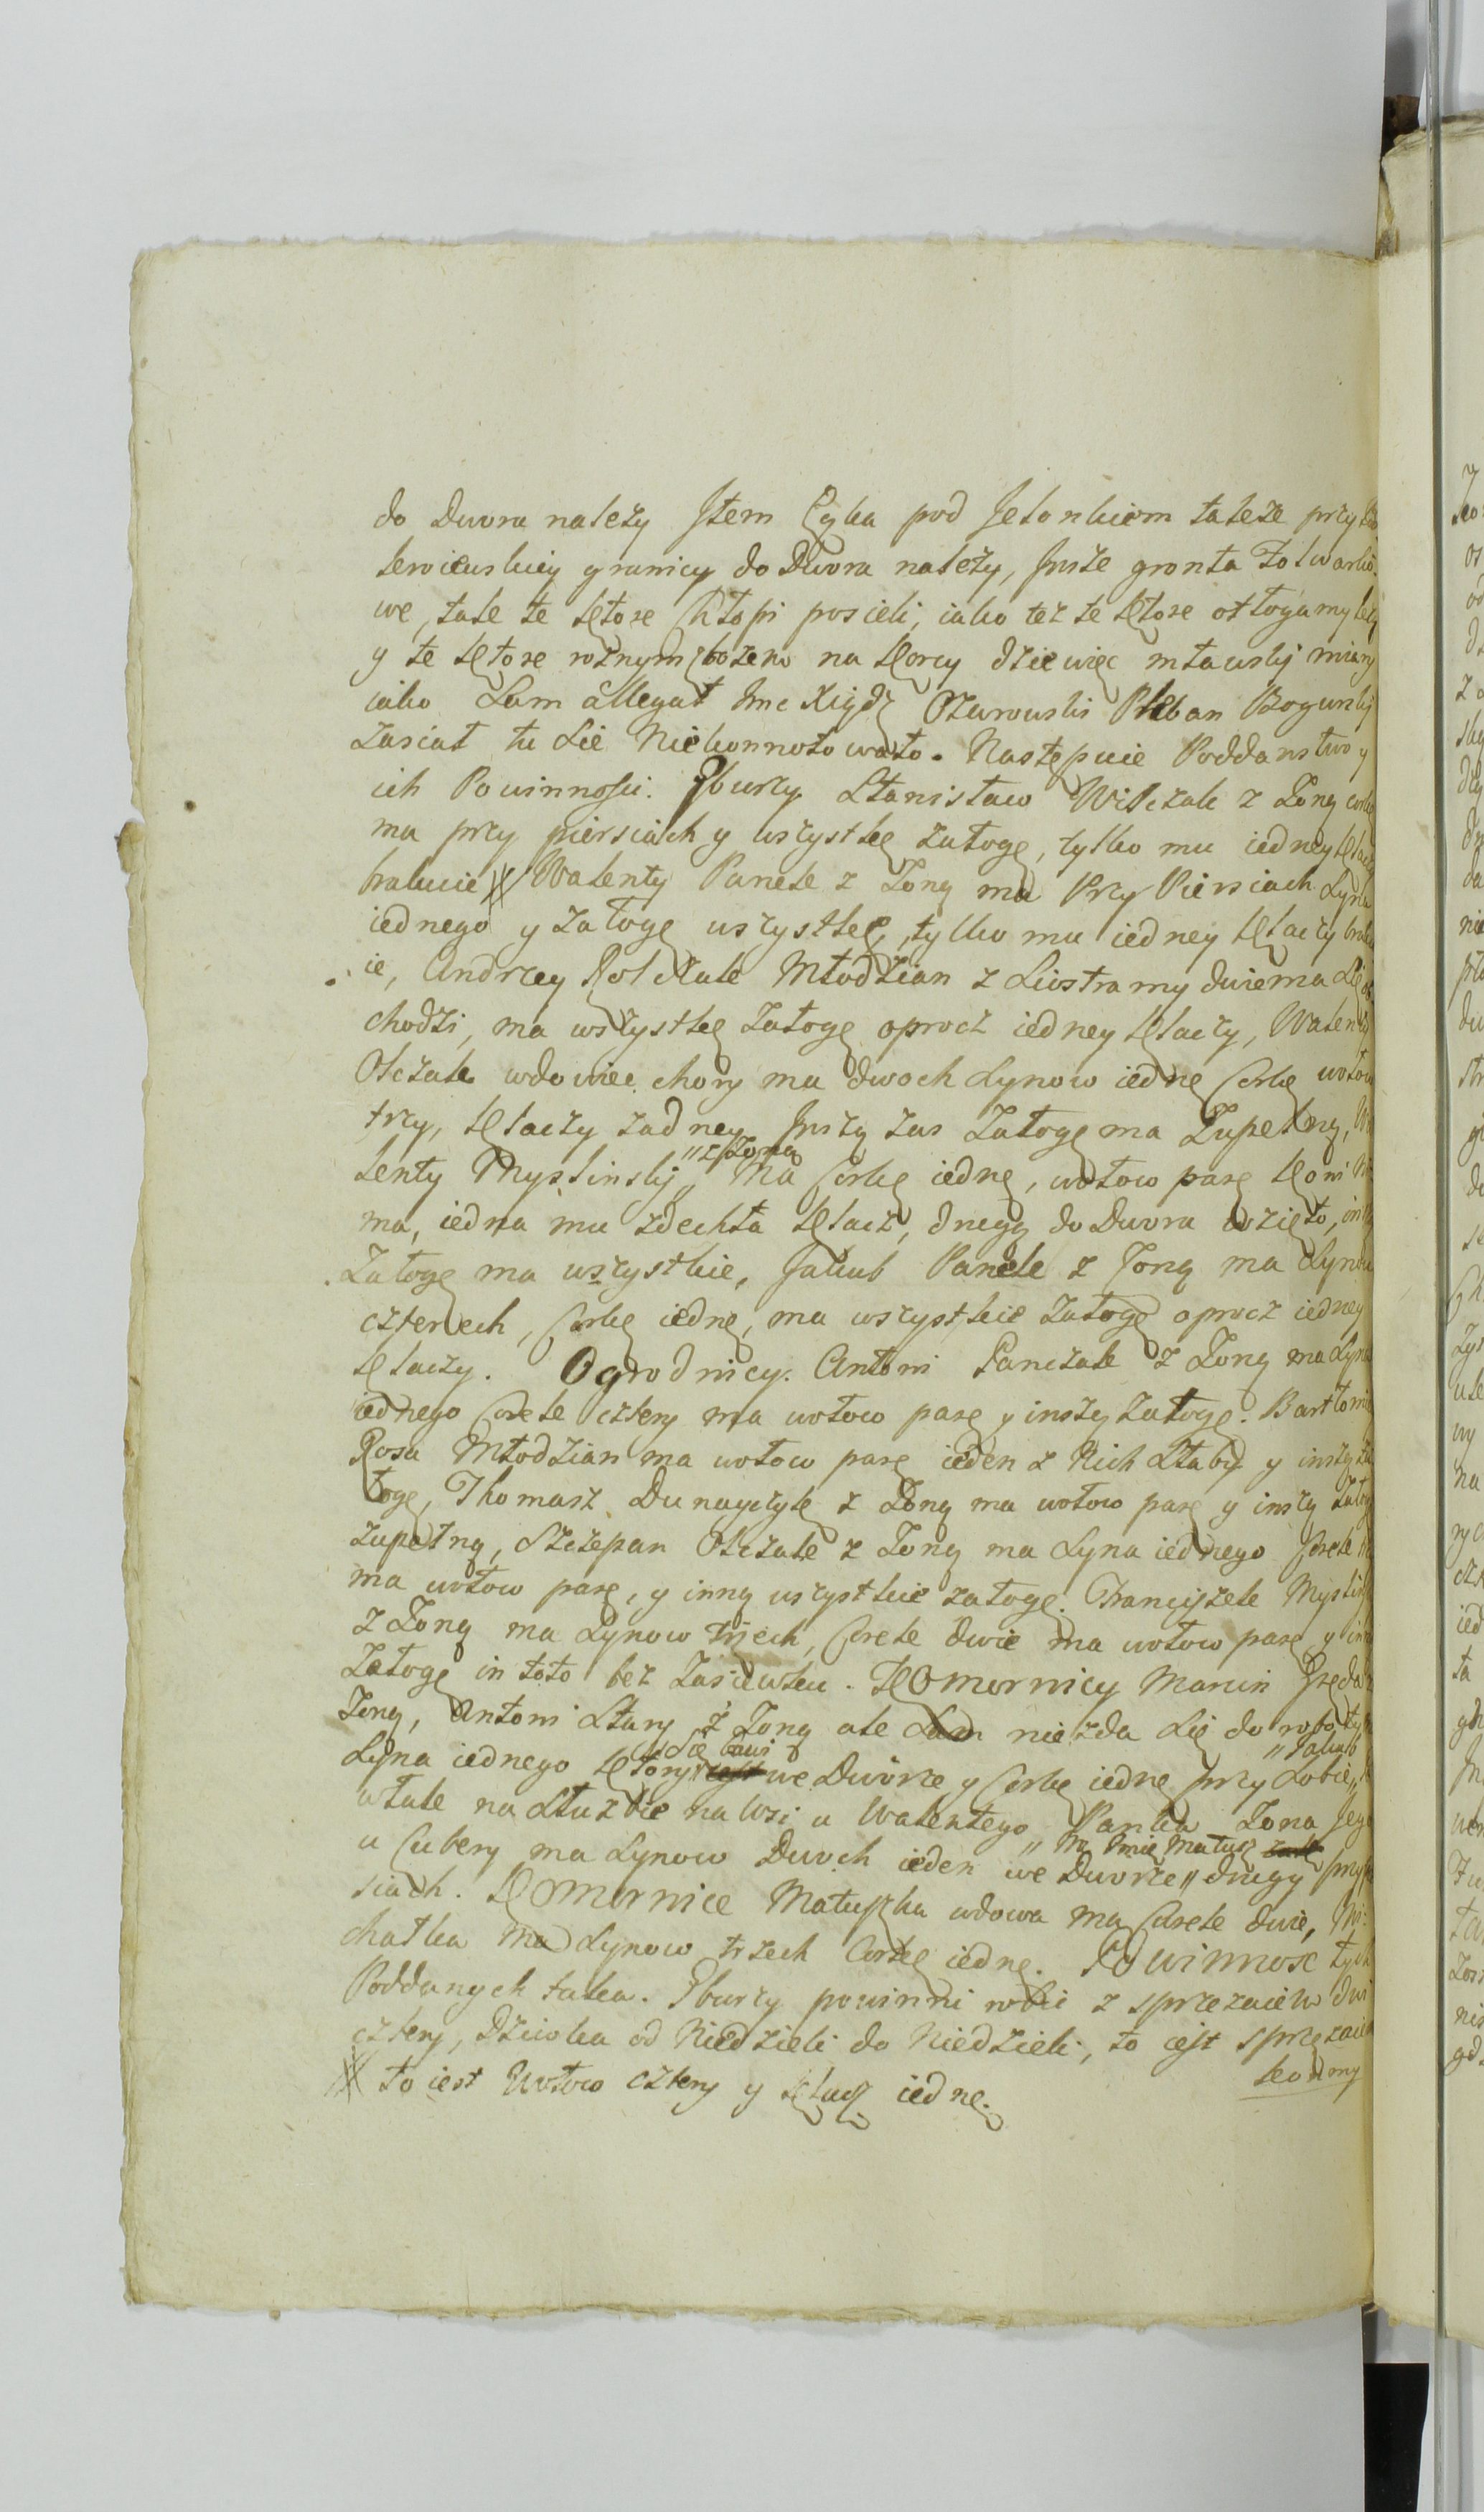 do Dwora należy Item Łąka pod Jelonkiem także przy
kowieuskiey granicy do Dwora należy, Insze gronta Folwarko-
we, tak te ktore Chłopi posieli, iako też te ktore odłogamy leżą
y te ktore rożnym zbożem na korcy dziewięc mławskiej miary
iako Sam allegat Jmc Xiądz Ożarowski Pleban Bogurski
Zasiał tu sie Niekonnotowało. Następuie Poddanstwo y
ich Powinnosci. Gburzy Stanisław Wilczak z Zoną
ma przy piersiach y wszystkę załogę, tylko mu iedney klaczy
brakuie # Walenty Panek z Zoną ma Przy Piersiach Syna
iednego y załogę wszystkę, tylko mu iedney klaczy braku
ie, Andrzey Rolczak Młodzian z Siostramy dwiema Się ob
chodzi, ma wszystkę Załogę oprocz iedney klaczy, Walenty
Olczak wdowiec chory ma dwoch Synow iednę Corkę wołow
trzy, klaczy zadney Inszą zas Załogę ma Zupełną, Wa
lenty Myslinskj "z Zoną" Ma Corkę iednę, wołow parę koni Ni
ma, iedna mu zdechła klacz, drugą do Dwora wzięto, inszą
Załogę ma wszystkie, Jakub Panek z Zoną ma Synow
czterech, Corkę iednę, ma wszystkie załogę oprocz iedney
klaczy. Ogrodnicy. Antoni Panczak z Zoną ma Syna
iednego Corek cztery ma wołow parę y inszą załogę. Bartłomiey
Rosa Młodzian ma wołow parę ieden z Nich Słaby y inszą za
łogę, Thomasz Dunayczyk z Zoną ma wołow parę y inszą załogę
zupełną, Szczepan Olczak z Zoną ma Syna iednego Corek
ma wołow parę, y inną wszystkie załogę. Franciszek Myslinsk
z Zoną ma Synow trzech, Corek dwie ma wołow parę y inną
Załogę in toto bez Zasiewku. Komornicy Marcin Gręda z
Zoną, Antoni Stary z Zoną ale Sam nie zda Się do roboty
Syna iednego ktory "sie bawi" we Dworze y Corkę iednę przy Sobie, "Jakub"
wtak na Służbie na Wsi u Walentego Panka Zona Jego
u Cubery ma Synow Dwoch ieden we Dworze "na Imie Matusz" drugy przy
siach. Komornice Matuszka wdowa ma Corek dwie, Mi-
chałka ma Synow trzech Corkę iednę. Powinnosc tych
Poddanych taka. Gburzy powinni robic z sprzężaiem dni
cztery, Dziwka od Niedzieli do Niedzieli, to iest sprzężaiem
# to iest Wołow cztery y klacz iednę.